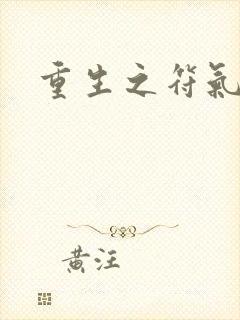 重生之符氣
黄汪